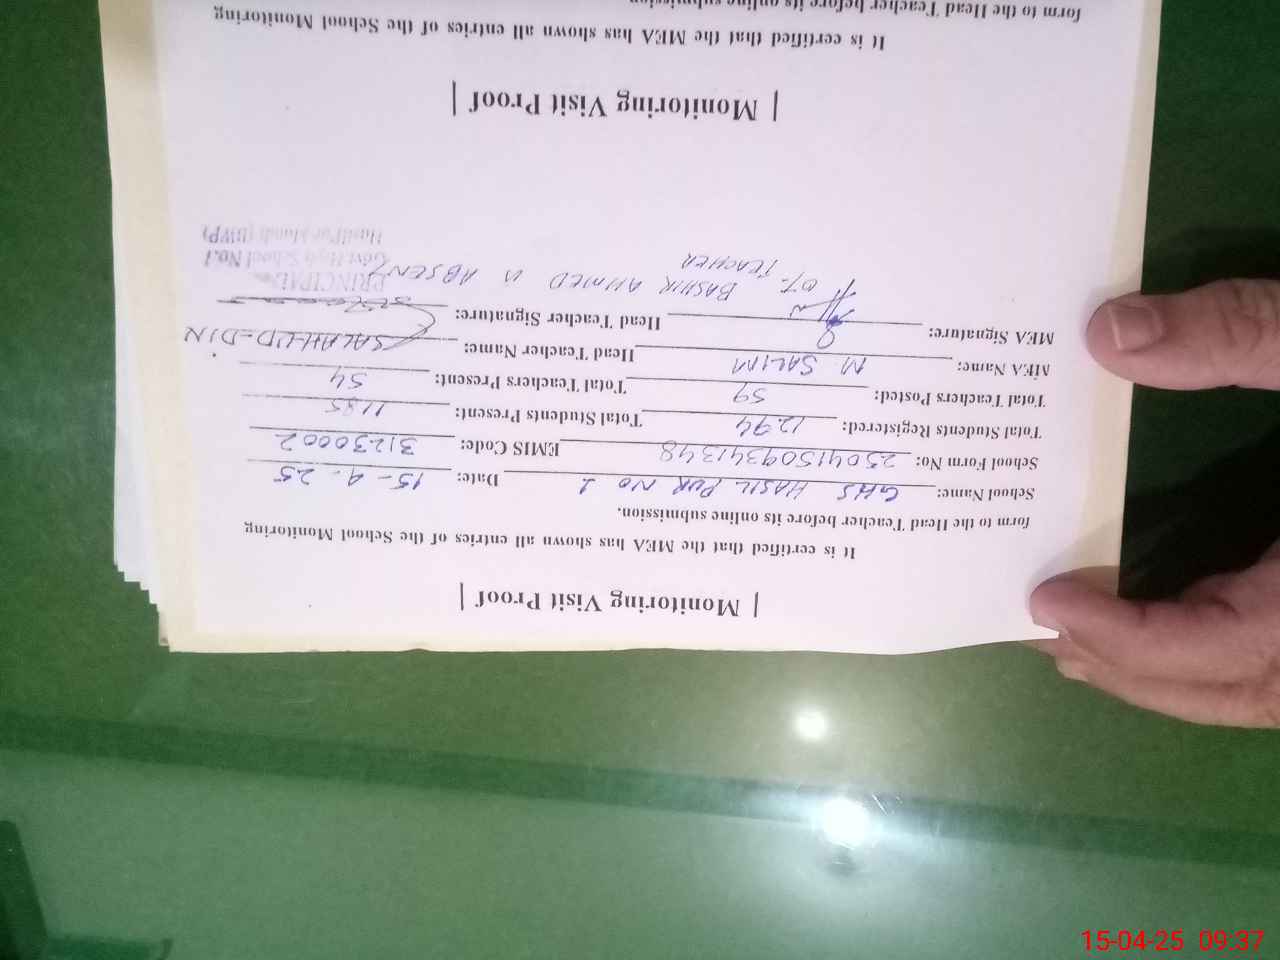 | Monitoring Visit Proof |
It is certified that the MEA has shown all entries of the School Monitoring
form to the Head Teacher before its online submission.
School Name: GHS HASIL PUR NO 1 Date: 15-4-25
School Form No: 25041509341348 EMIS Code: 31230002
Total Students Registered: 1294 Total Students Present: 1185
Total Teachers Posted: 59 Total Teachers Present: 54
MEA Name: M SALIM Head Teacher Name: SALAH-UD-DIN
MEA Signature: Head Teacher Signature:
BASHIR AHMED is ABSENT
TEACHER
PRINCIPAL
Govt. High School No.1
HasilPur Mandi (BWP)
| Monitoring Visit Proof |
It is certified that the MEA has shown all entries of the School Monitoring
form to the Head Teacher before its online submission
15-04-25 09:37